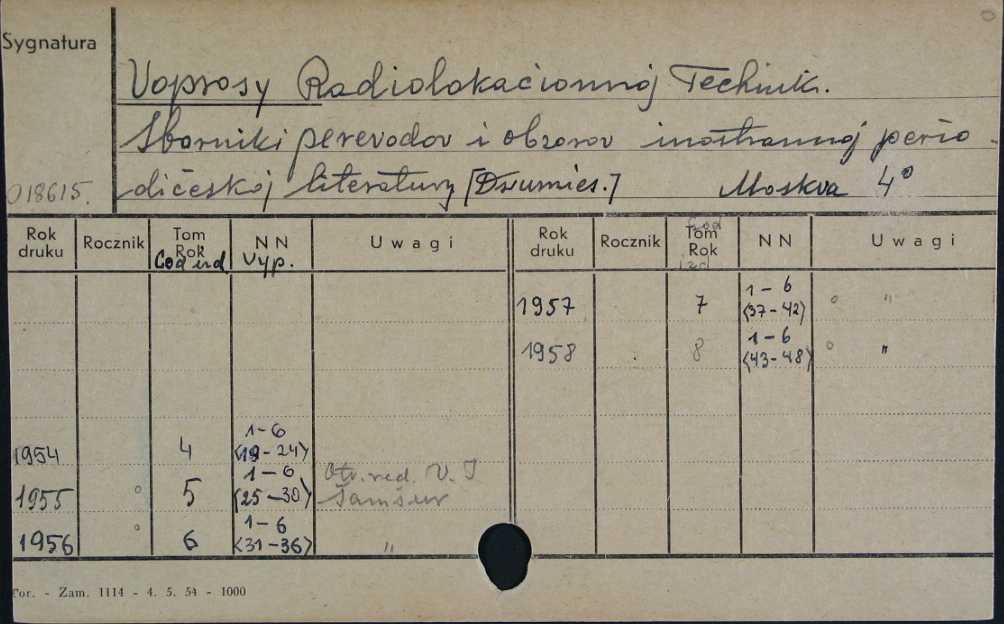 Sygnatura
Voprosy Radiolokacionnoj Technik.
Sborniki perevodov i obzorov inostrannoj perio-
018615.
dičeskoj literatury [Dwumies.] Moskva 4°
Rok druku Rocznik Tom Rok God izd NN Vyp. Uwagi Rok druku Rocznik Tom Rok God izd NN Uwagi
1957 7 1-6 (37-42) "
1958 8 1-6 (43-48) "
1954 4 1-6 (19-24)
1955 5 1-6 (25-30) Otv. red. V. I Šamšur
1956 6 1-6 (31-36) "
Tor. - Zam. 1114 - 4. 5. 54 - 1000